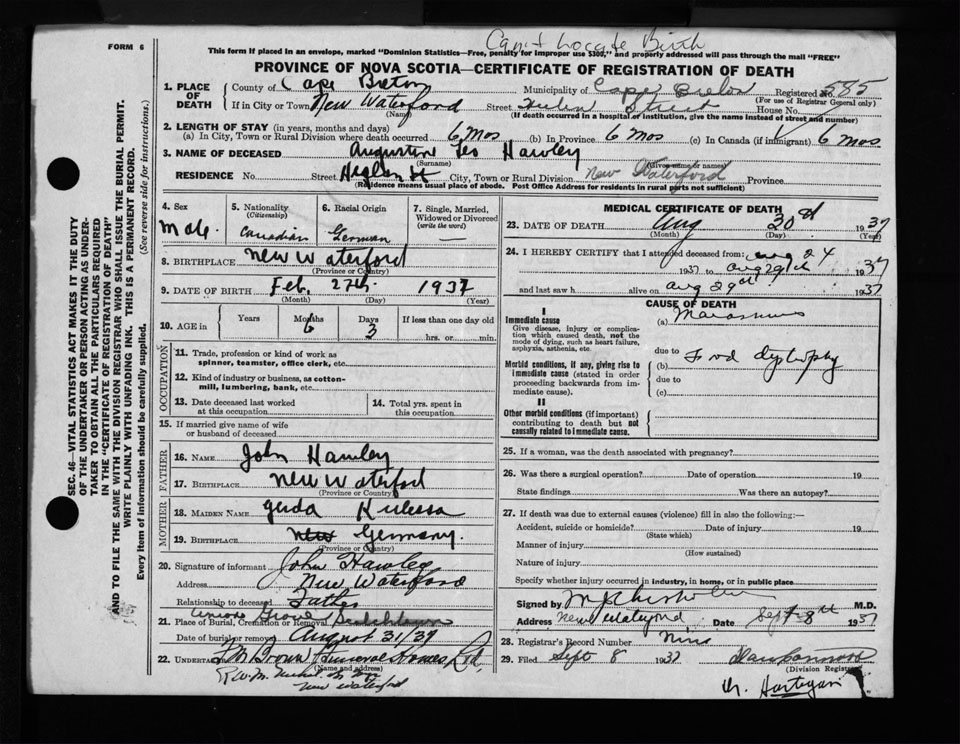 FORM 6
Can't Locate Birth
This form if placed in an envelope, marked "Dominion Statistics—Free, penalty for improper use $300," and properly addressed will pass through the mail "FREE"
PROVINCE OF NOVA SCOTIA—CERTIFICATE OF REGISTRATION OF DEATH
1. PLACE OF DEATH
County of Cape Breton Municipality of Cape Breton Registered No. 585
(For use of Registrar General only)
If in City or Town New Waterford Street House No.
(Name) (If death occurred in a hospital or institution, give the name instead of street and number)
2. LENGTH OF STAY (in years, months and days)
(a) In City, Town or Rural Division where death occurred 6 Mos (b) In Province 6 Mos (c) In Canada (if immigrant) 6 Mos
3. NAME OF DECEASED Augustine Leo Hawley
(Surname) (Given name or names)
RESIDENCE No. Street City, Town or Rural Division New Waterford Province
(Residence means usual place of abode. Post Office Address for residents in rural parts not sufficient)
4. Sex
Male
5. Nationality
(Citizenship)
Canadian
6. Racial Origin
German
7. Single, Married, Widowed or Divorced
(write the word)
—
8. BIRTHPLACE New Waterford
(Province or Country)
9. DATE OF BIRTH Feb. 27th. 1937
(Month) (Day) (Year)
10. AGE in
Years Months Days If less than one day old
6 3 hrs. or min.
OCCUPATION
11. Trade, profession or kind of work as
spinner, teamster, office clerk, etc.
12. Kind of industry or business, as cotton-
mill, lumbering, bank, etc.
13. Date deceased last worked
at this occupation
14. Total yrs. spent in
this occupation
15. If married give name of wife
or husband of deceased
FATHER
16. NAME John Hawley
17. BIRTHPLACE New Waterford
(Province or Country)
MOTHER
18. MAIDEN NAME Gerda
19. BIRTHPLACE New Germany.
(Province or Country)
20. Signature of informant John Hawley
Address New Waterford
Relationship to deceased Father
21. Place of Burial, Cremation or Removal Scotchtown
Date of burial or removal August 31/37
22. UNDERTAKER Brown Funeral Homes Ltd
(Name and address)
New Waterford
MEDICAL CERTIFICATE OF DEATH
23. DATE OF DEATH Aug 30 1937
(Month) (Day) (Year)
24. I HEREBY CERTIFY that I attended deceased from: Aug 24
1937 to Aug 29th 1937
and last saw h alive on Aug 29 1937
CAUSE OF DEATH
I
Immediate cause
Give disease, injury or complication which caused death, not the mode of dying, such as heart failure, asphyxia, asthenia, etc.
(a) Marasmus
due to
Morbid conditions, if any, giving rise to immediate cause (stated in order proceeding backwards from immediate cause).
(b) Food dystrophy
due to
(c)
II
Other morbid conditions (if important) contributing to death but not causally related to immediate cause.
25. If a woman, was the death associated with pregnancy?
26. Was there a surgical operation? Date of operation 19
State findings Was there an autopsy?
27. If death was due to external causes (violence) fill in also the following:—
Accident, suicide or homicide? Date of injury 19
(State which)
Manner of injury
(How sustained)
Nature of injury
Specify whether injury occurred in industry, in home, or in public place
Signed by M.D.
Address New Waterford Date Sept 8th 1937
28. Registrar's Record Number Nine
29. Filed Sept 8 1937
(Division Registrar)
Hartigan
SEC. 46—VITAL STATISTICS ACT MAKES IT THE DUTY
OF THE UNDERTAKER OR PERSON ACTING AS UNDER-
TAKER TO OBTAIN ALL THE PARTICULARS REQUIRED
IN THE "CERTIFICATE OF REGISTRATION OF DEATH"
AND TO FILE THE SAME WITH THE DIVISION REGISTRAR WHO SHALL ISSUE THE BURIAL PERMIT.
WRITE PLAINLY WITH UNFADING INK. THIS IS A PERMANENT RECORD.
Every item of information should be carefully supplied. (See reverse side for instructions.)